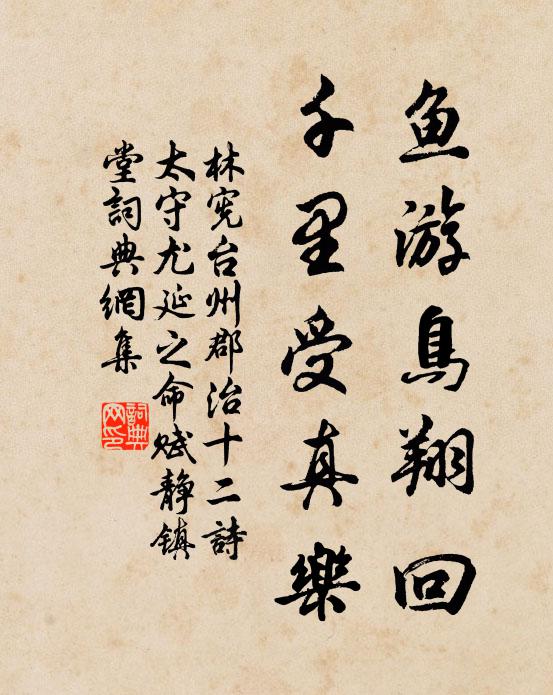 鱼游鳥翔回
千里受真樂
林宪台州郡治十二詩
太守尤延之命赋静镇
堂詞典網集
詞典网印